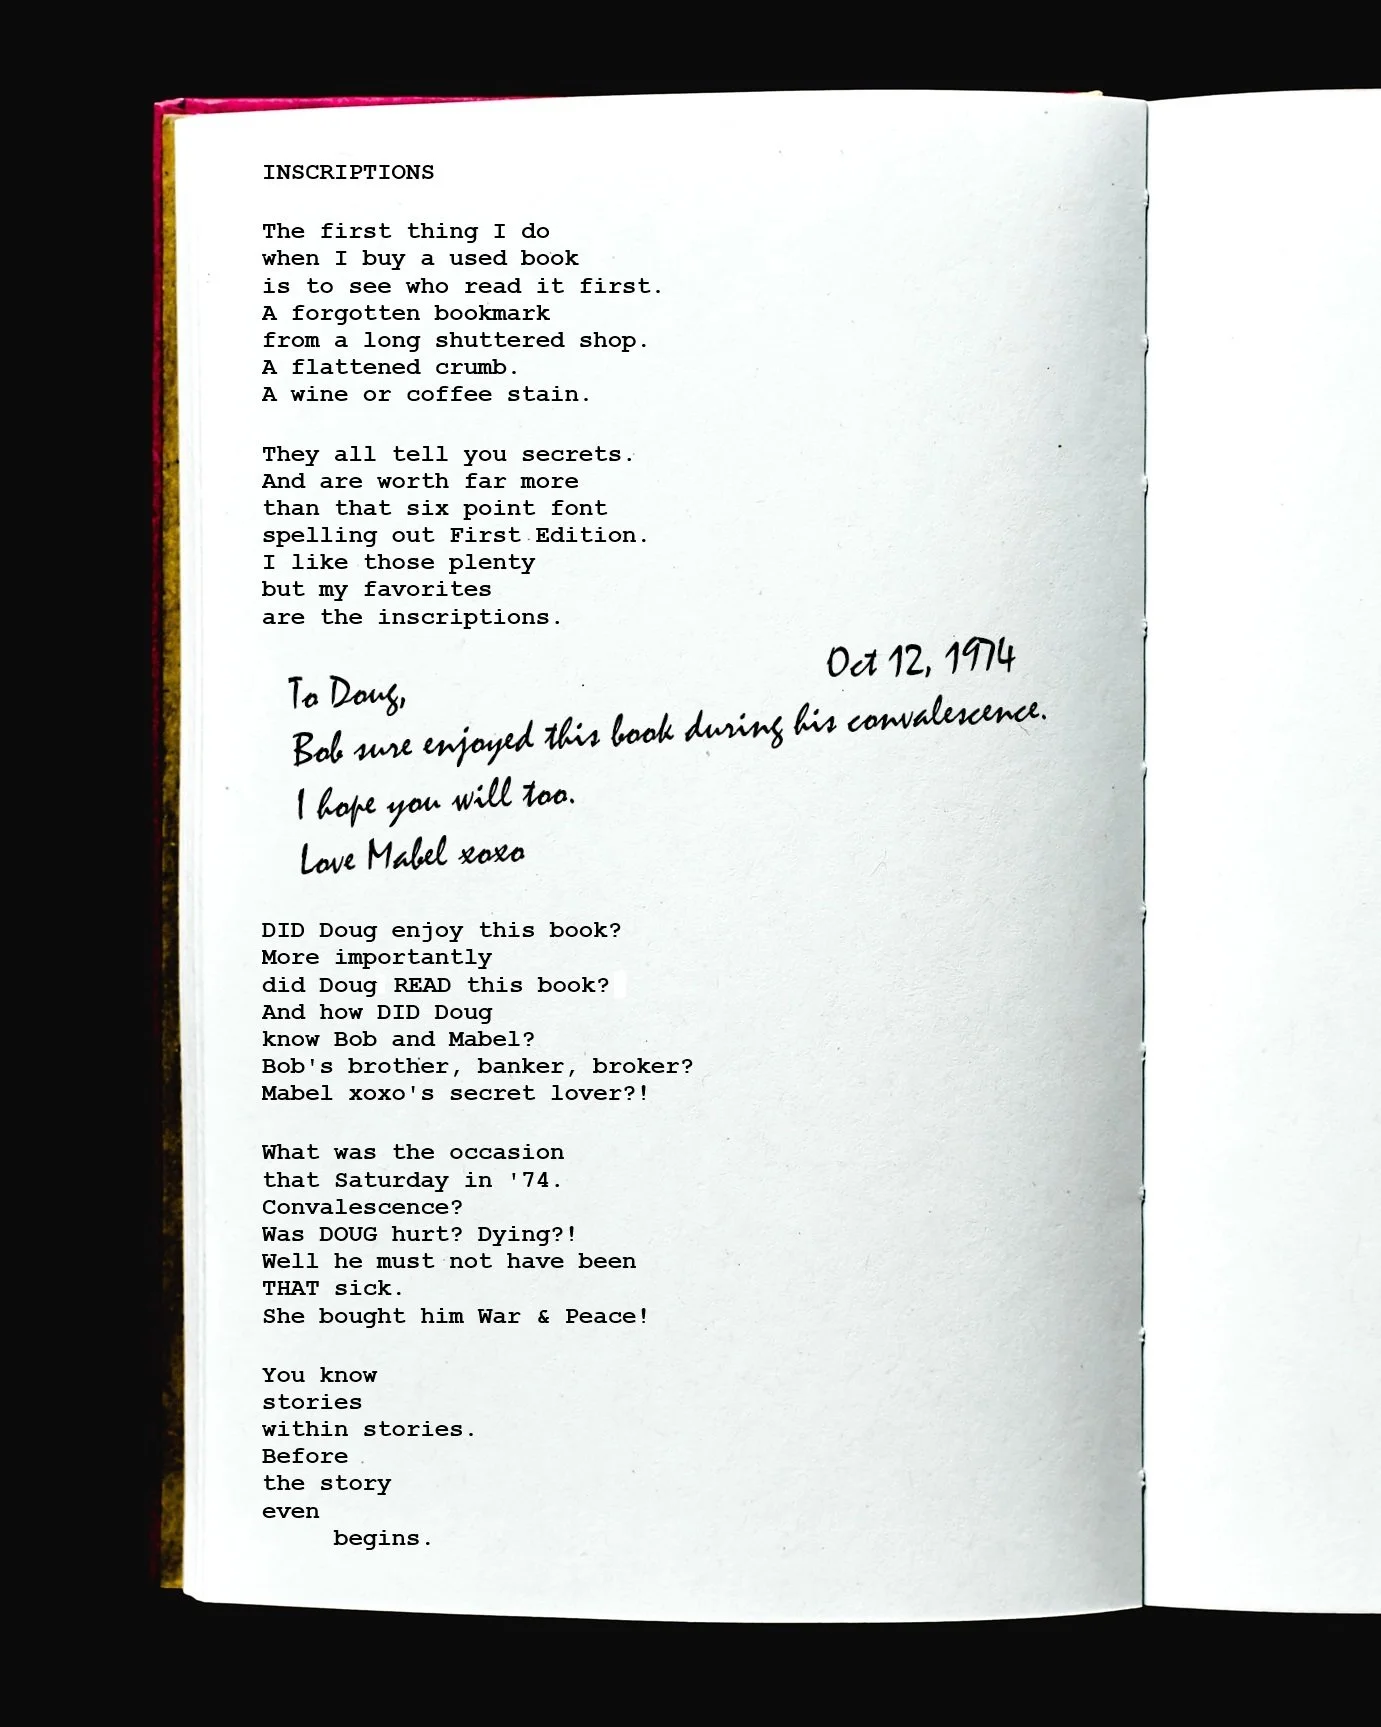 INSCRIPTIONS
The first thing I do
when I buy a used book
is to see who read it first.
A forgotten bookmark
from a long shuttered shop.
A flattened crumb.
A wine or coffee stain.
They all tell you secrets.
And are worth far more
than that six point font
spelling out First Edition.
I like those plenty
but my favorites
are the inscriptions.
Oct 12, 1974
To Doug,
Bob sure enjoyed this book during his convalescence.
I hope you will too.
Love Mabel xoxo
DID Doug enjoy this book?
More importantly
did Doug READ this book?
And how DID Doug
know Bob and Mabel?
Bob's brother, banker, broker?
Mabel xoxo's secret lover?!
What was the occasion
that Saturday in '74.
Convalescence?
Was DOUG hurt? Dying?!
Well he must not have been
THAT sick.
She bought him War & Peace!
You know
stories
within stories.
Before
the story
even
begins.